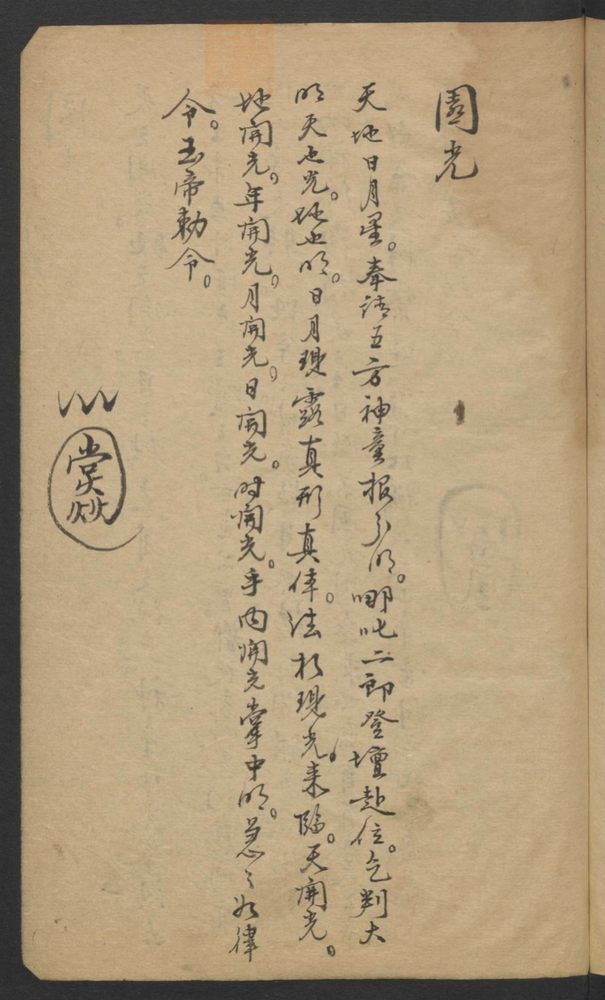 圓光
天地日月星。奉請五方神童报分明。哪吒二郎登壇赴位。乞判大
明天也光。地也明。日月現露真形真体。法杉現光来臨。天開光。
地開光。年開光。月開光。日開光。时開光。手内開光掌中明。急〻如律
令。玉帝勅令。